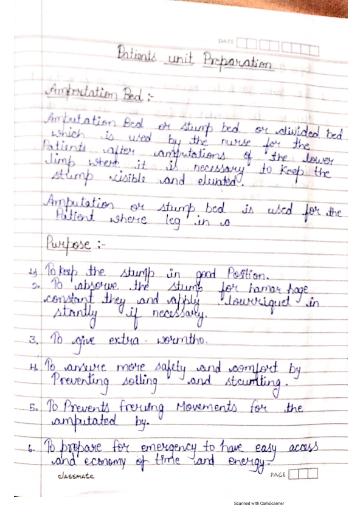 DATE
Patients unit Preparation
Amputation Bed :-
Amputation Bed or stump bed or divided bed
which is used by the nurse for the
Patients after amputations of the lower
limp where it is necessary to keep the
stump visible and elevated.
Amputation or stump bed is used for the
Patient where leg in a
Purpose :-
1. To keep the stump in good Position.
2. To observe the stump for hamar hage
constant they and apply tourniquet in
stantly if necessary.
3. To give extra wormtho.
4. To ansure more safety and comfort by
Preventing solling and
5. To Prevents Movements for the
amputated by.
6. To prepare for emergency to have easy access
and economy of time and energy.
classmate
PAGE
Scanned with CamScanner